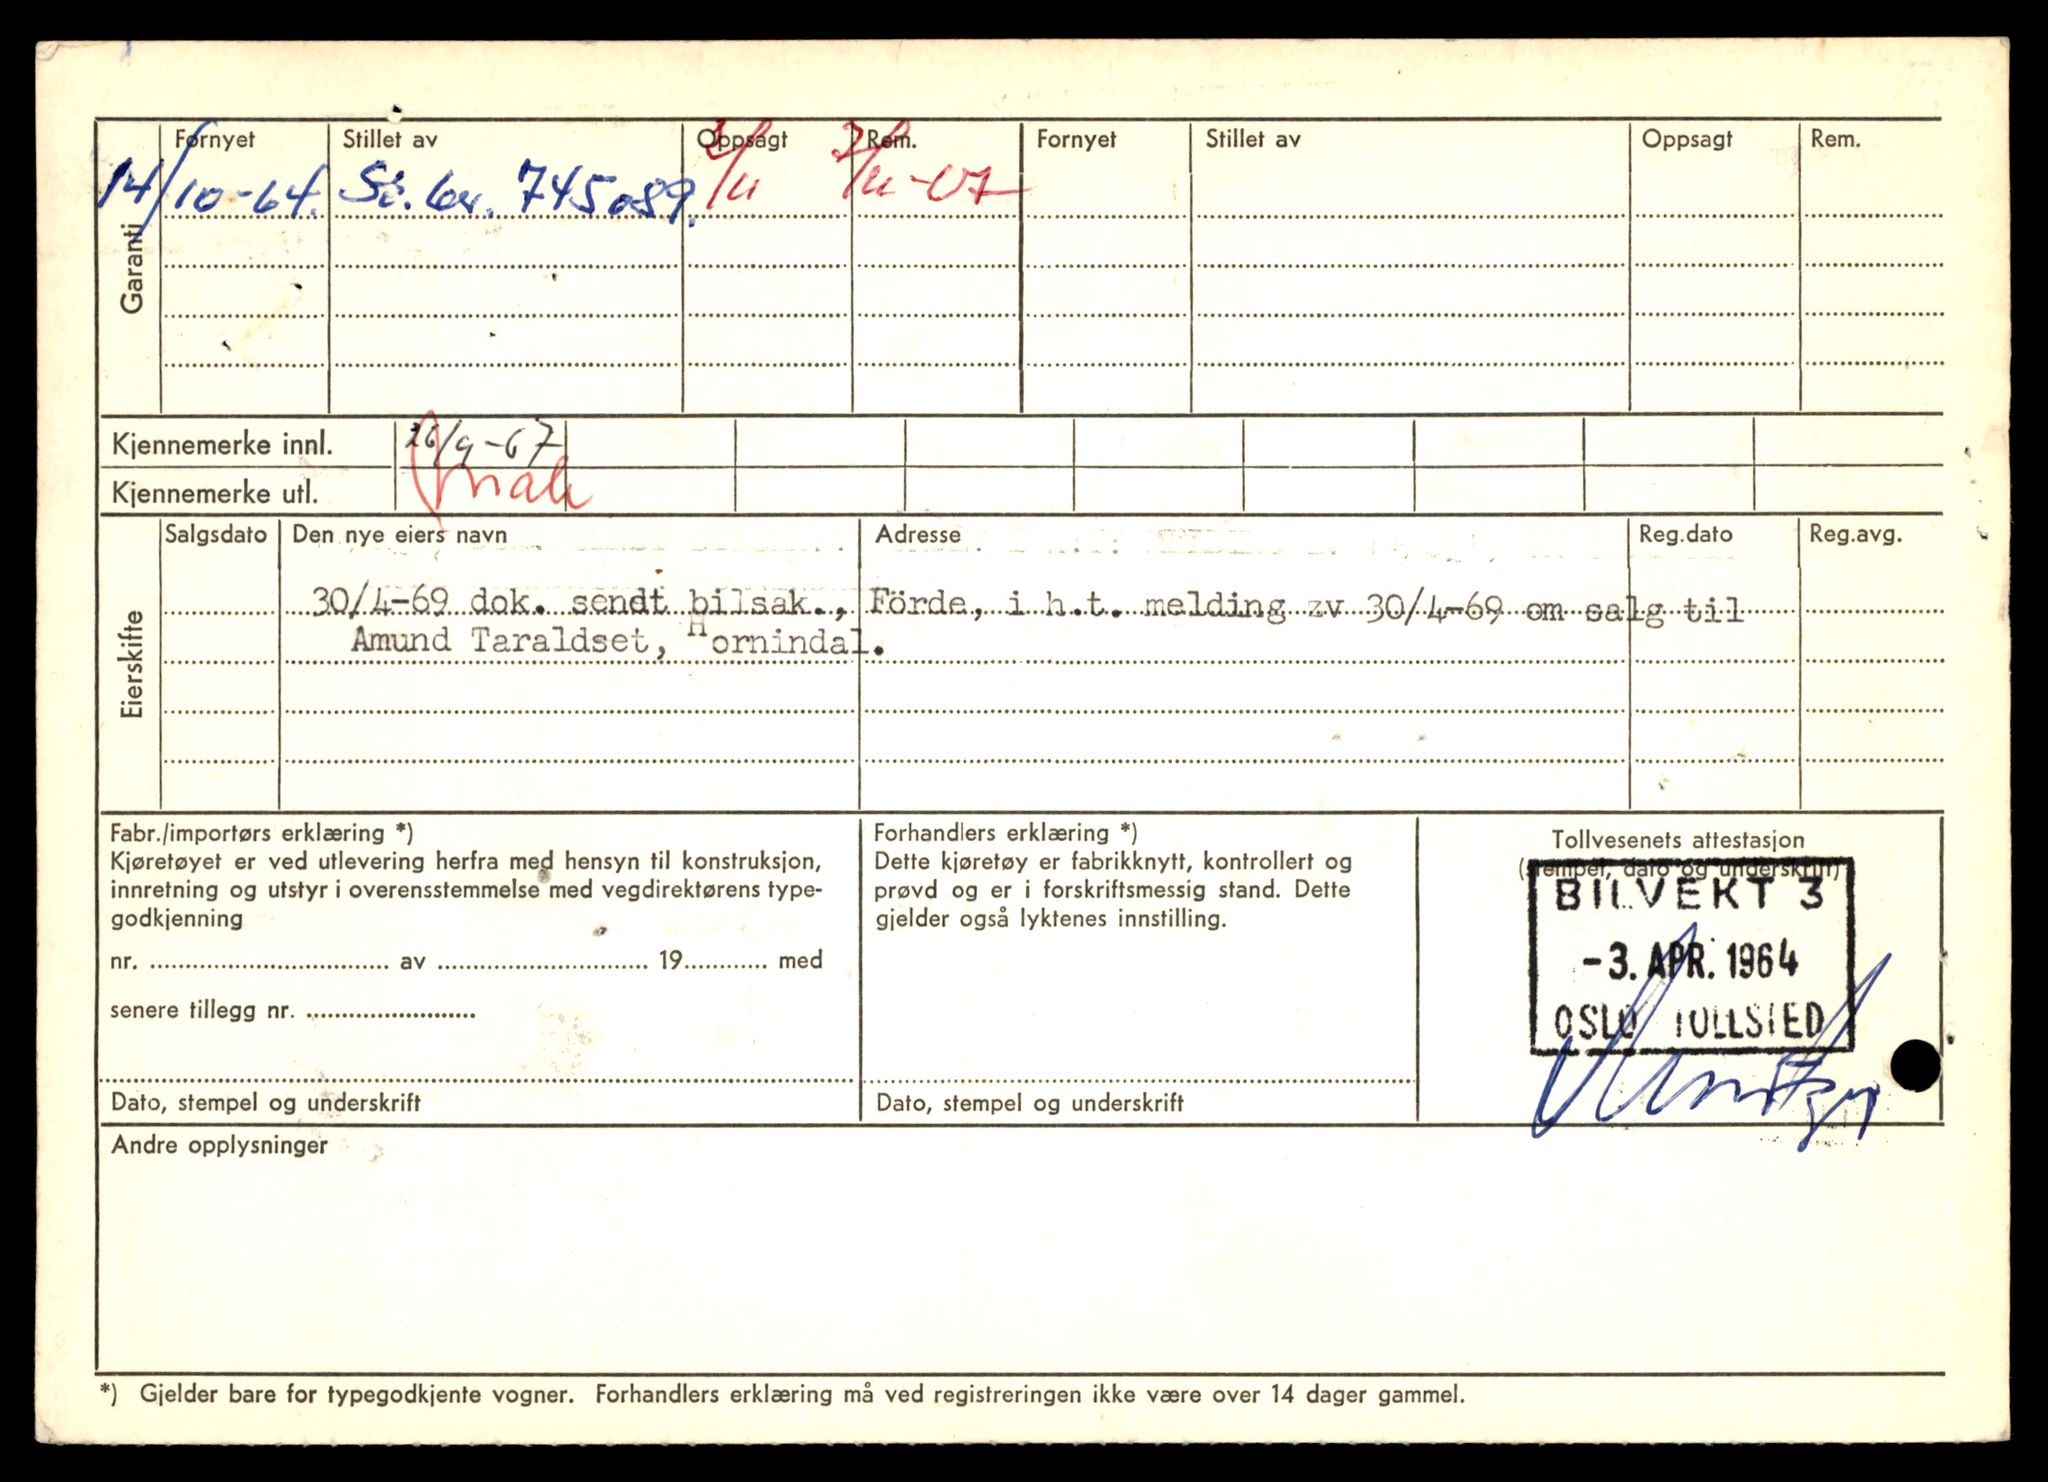 Garanti
Fornyet Stillet av Oppsagt Rem. Fornyet Stillet av Oppsagt Rem.
14/10-64. 745089. 2/11 2/11-67
Kjennemerke innl. 26/9-67
Kjennemerke utl.
Eierskifte
Salgsdato Den nye eiers navn Adresse Reg.dato Reg.avg.
30/4-69 dok. sendt bilsak., Förde, i h.t. melding zv 30/4-69 om salg til
Amund Taraldset, Hornindal.
Fabr./importørs erklæring *)
Kjøretøyet er ved utlevering herfra med hensyn til konstruksjon,
innretning og utstyr i overensstemmelse med vegdirektørens type-
godkjenning
nr. av 19 med
senere tillegg nr.
Dato, stempel og underskrift
Forhandlers erklæring *)
Dette kjøretøy er fabrikknytt, kontrollert og
prøvd og er i forskriftsmessig stand. Dette
gjelder også lyktenes innstilling.
Dato, stempel og underskrift
Tollvesenets attestasjon
(stempel, dato og underskrift)
BILVEKT 3
-3. APR. 1964
OSLO TOLLSTED
Andre opplysninger
*) Gjelder bare for typegodkjente vogner. Forhandlers erklæring må ved registreringen ikke være over 14 dager gammel.